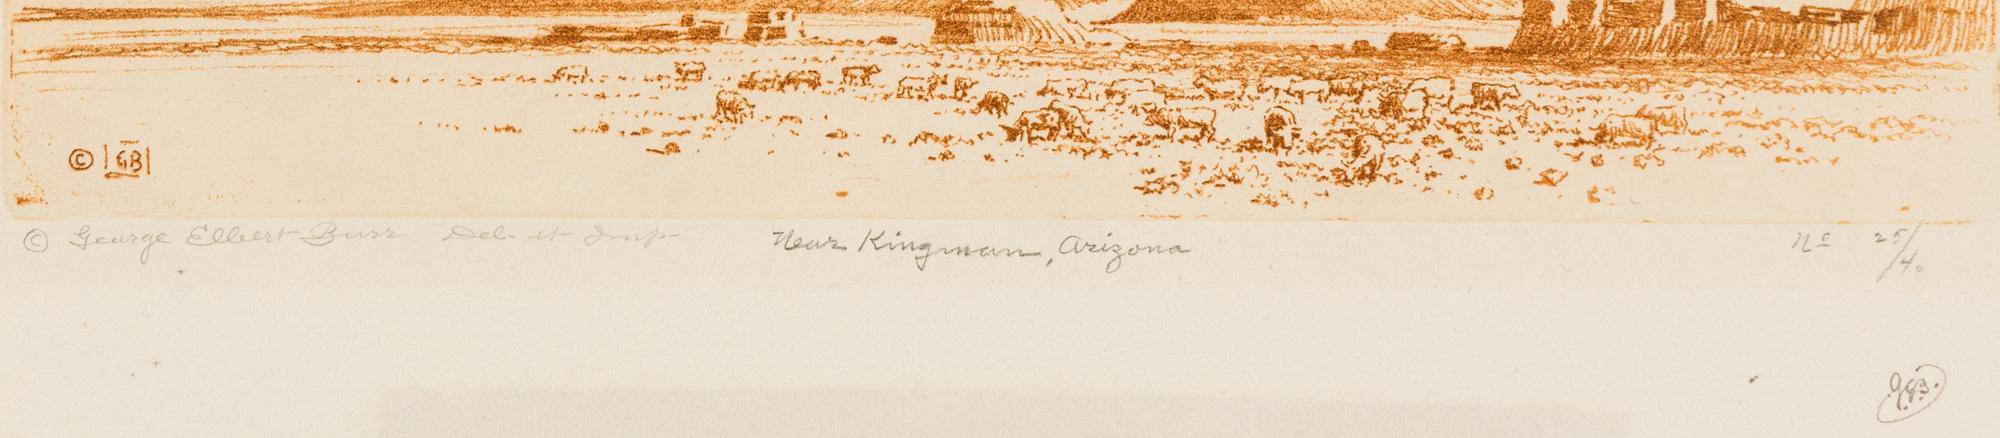 © GB
© George Elbert Burr Del- et Imp- Near Kingman, Arizona Nº 25/40
G.E.B.